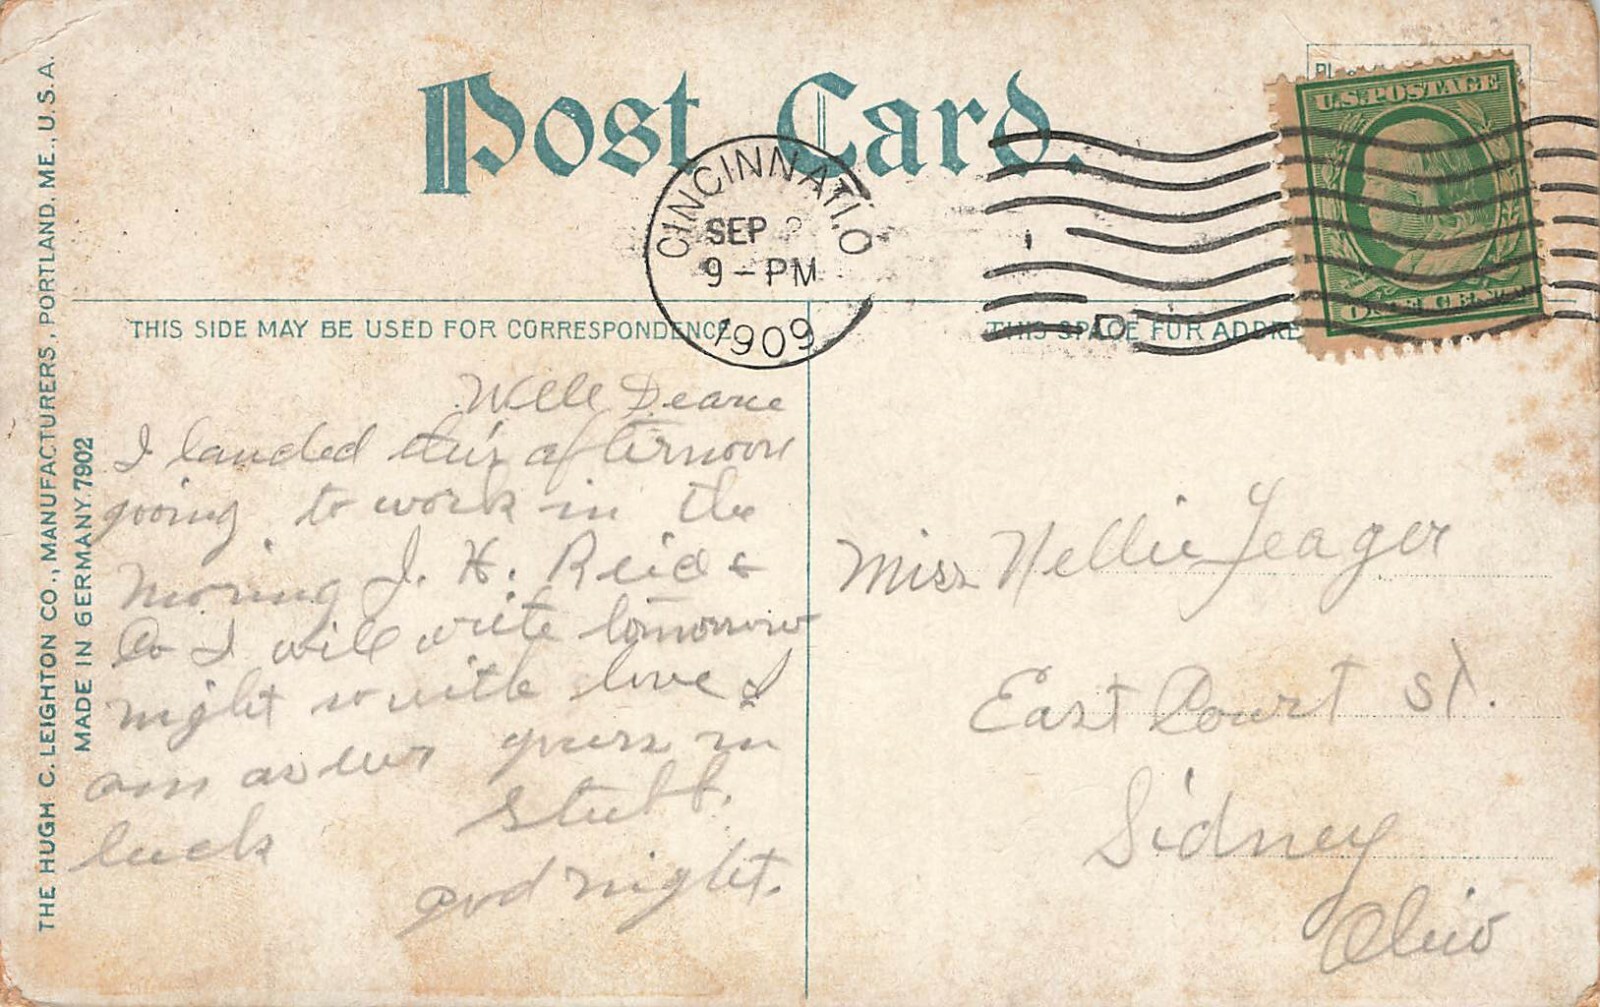 Post Card.
CINCINNATI, O
SEP 2
9 - PM
1909
U.S. POSTAGE
THIS SIDE MAY BE USED FOR CORRESPONDENCE
THIS SPACE FOR ADDRE
THE HUGH C. LEIGHTON CO., MANUFACTURERS, PORTLAND, ME., U.S.A.
MADE IN GERMANY. 7902
Well Dearie
I landed this afternoon
going to work in the
morning J. H. Reid &
Co I will write tomorrow
night so with love I
am as ever yours in
luck Stubb.
good night.
Miss Nellie Yeager
East Court St.
Sidney
Ohio